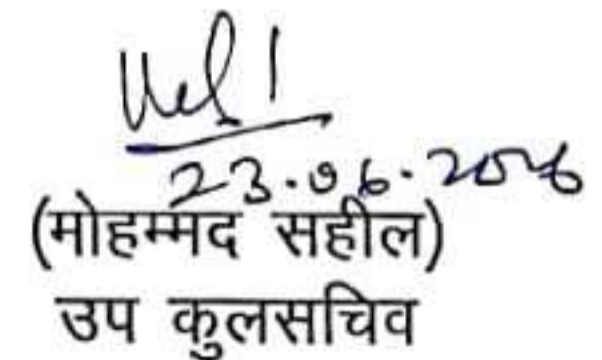 23.06.2026
(मोहम्मद सहील)
उप कुलसचिव